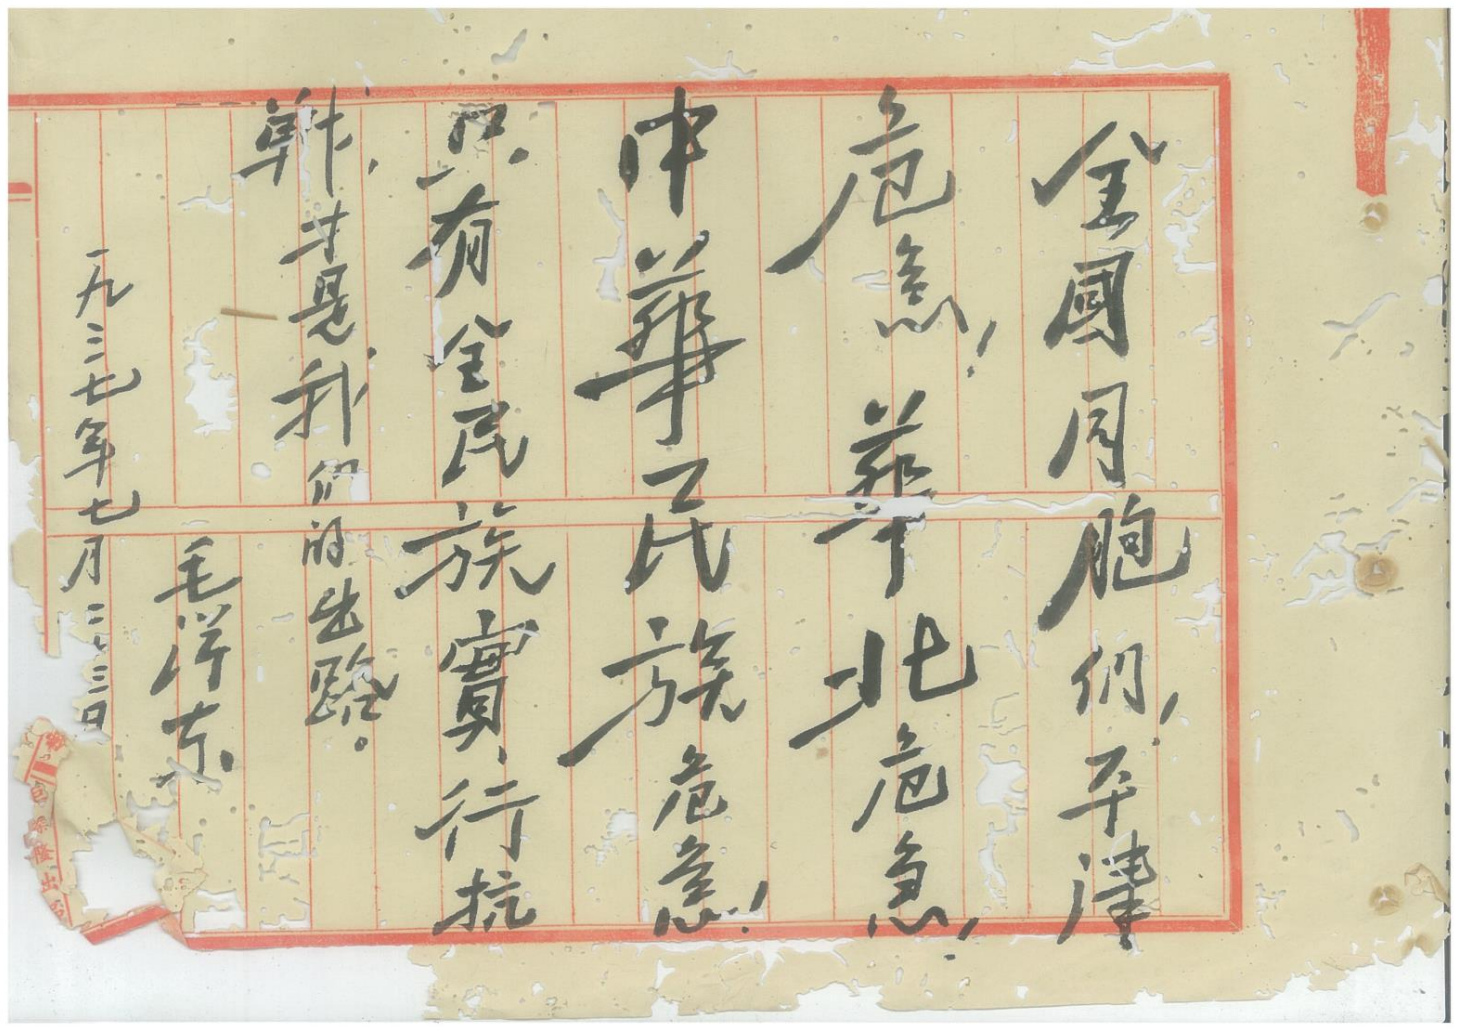 全國同胞們！平津
危急！華北危急！
中華民族危急！
只有全民族實行抗
戰，才是我们的出路。
毛泽东
一九三七年七月二十三日